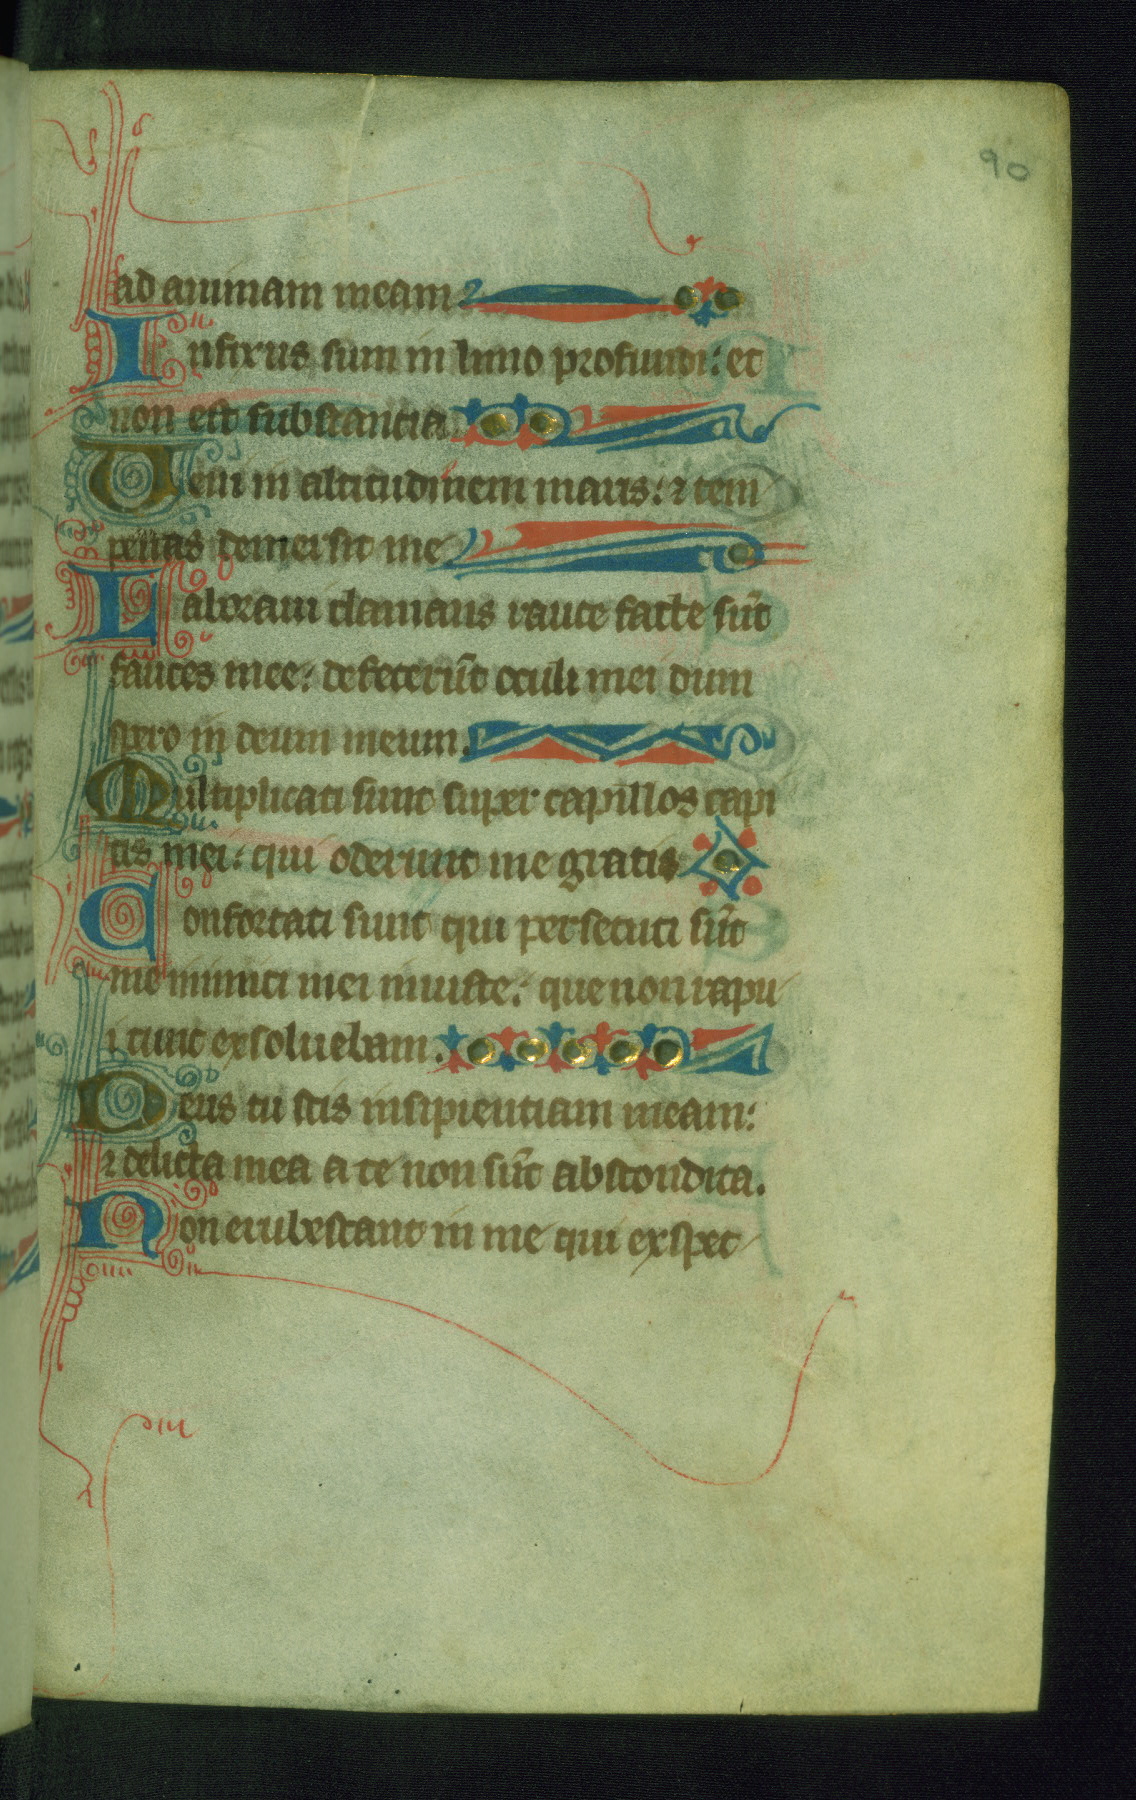 90
ad animam meam
Infixus sum in limo profundi: et
non est substancia
Veni in altitudinem maris: ⁊ tem
pestas demersit me
Laboraui clamans rauce facte sūt
fauces mee: defecerūt oculi mei dum
spero in deum meum.
Multiplicati sunt super capillos capi
tis mei: qui oderunt me gratis
Confortati sunt qui persecuti sūt
me inimici mei iniuste: que non rapu
i tunc exsoluebam.
Deus tu scis insipientiam meam:
⁊ delicta mea a te non sūt abscondita.
Non erubescant in me qui exspec